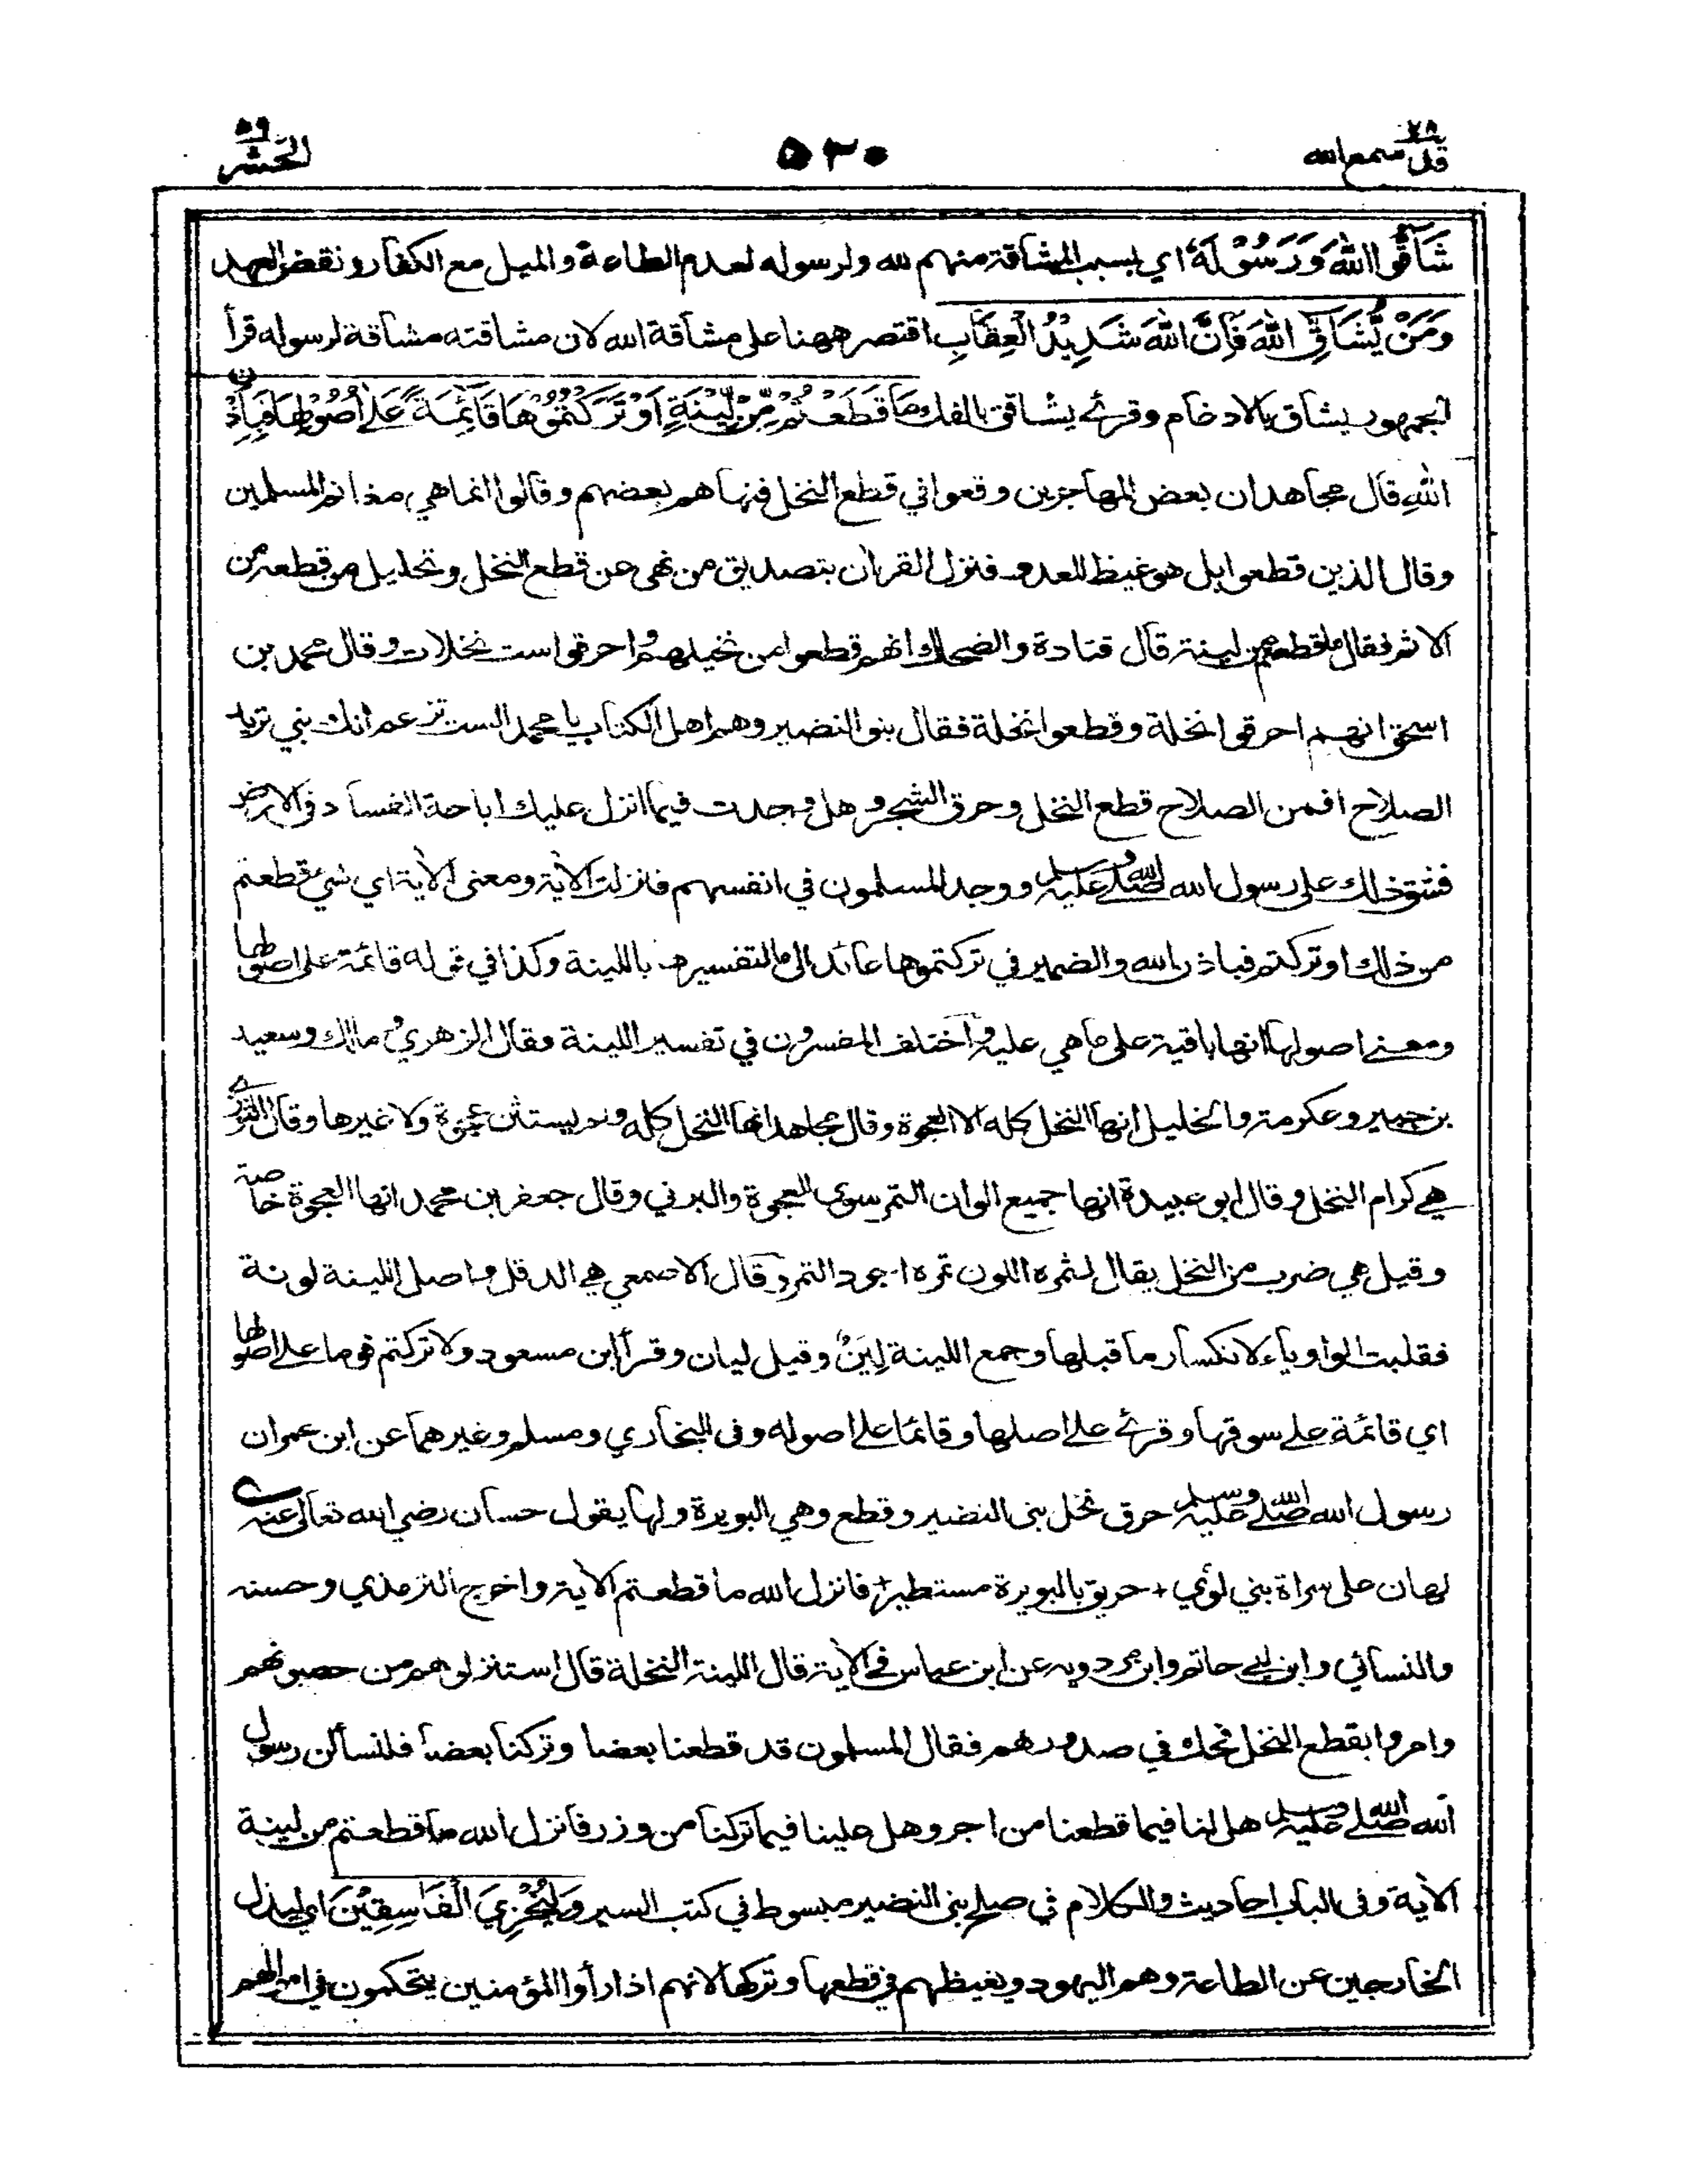 قد سمع الله ٢٨
٥٣٠
الحشر ٥٩
شَاقُّوا اللّٰهَ وَرَسُوْلَهٗ اي بسبب المشاقة منهم لله ولرسوله لعدم الطاعة والميل مع الكفار ونقض العهد
وَمَنْ يُّشَاقِّ اللّٰهَ فَاِنَّ اللّٰهَ شَدِيْدُ الْعِقَابِ اقتصر ههنا على مشاقة الله لان مشاقته مشاقة لرسوله قرأ
الجمهور يشاق بالادغام وقرئ يشاقق بالفك مَا قَطَعْتُمْ مِّنْ لِّيْنَةٍ اَوْ تَرَكْتُمُوْهَا قَائِمَةً عَلٰى اُصُوْلِهَا فَبِاِذْنِ
اللّٰهِ قال مجاهد ان بعض المهاجرين وقعوا في قطع النخل فنهاهم بعضهم وقالوا انما هي مغانم المسلمين
وقال الذين قطعوا بل هو غيظ للعدو فنزل القرآن بتصديق من نهى عن قطع النخل وتحليل من قطعه من
الاثم فقال ما قطعتم من لينة قال قتادة والضحاك انهم قطعوا من نخيلهم واحرقوا ست نخلات وقال محمد بن
اسحق انهم احرقوا نخلة وقطعوا نخلة فقال بنو النضير وهم اهل الكتاب يا محمد الست تزعم انك نبي تريد
الصلاح افمن الصلاح قطع النخل وحرق الشجر وهل وجدت فيما انزل عليك اباحة الفساد في الارض
فشق ذلك على رسول الله صلى الله عليه وسلم ووجد المسلمون في انفسهم فانزلت الآية ومعنى الآية اي شيء قطعتم
من ذلك او تركتم فباذن الله والضمير في تركتموها عائد الى ما لتفسيره باللينة وكذا في قوله قائمة على اصولها
ومعنى اصولها انها باقية على ما هي عليه واختلف المفسرون في تفسير اللينة فقال الزهري ومالك وسعيد
بن جبير وعكرمة والخليل انها النخل كله الا العجوة وقال مجاهد انها النخل كله ولم يستثن عجوة ولا غيرها وقال الثوري
هي كرام النخل وقال ابو عبيدة انها جميع الوان التمر سوى العجوة والبرني وقال جعفر بن محمد انها العجوة خاصة
وقيل هي ضرب من النخل يقال لثمره اللون تمره اجود التمر وقال الاصمعي هي الدقل واصل اللينة لونة
فقلبت الواو ياء لانكسار ما قبلها وجمع اللينة لِيَنٌ وقيل ليان وقرأ ابن مسعود ولا تركتم قوما على اصولها
اي قائمة على سوقها وقرئ على اصلها وقائما على اصوله وفي البخاري ومسلم وغيرهما عن ابن عمر ان
رسول الله صلى الله عليه وسلم حرق نخل بني النضير وقطع وهي البويرة ولها يقول حسان رضي الله تعالى عنه
لهان على سراة بني لؤي + حريق بالبويرة مستطير + فانزل الله ما قطعتم الآية واخرج الترمذي وحسنه
والنسائي وابن ابي حاتم وابن مردويه عن ابن عباس في الآية قال اللينة النخلة قال استنزلوهم من حصونهم
وامروا بقطع النخل فحك في صدورهم فقال المسلمون قد قطعنا بعضا وتركنا بعضا فلنسألن رسول
الله صلى الله عليه وسلم هل لنا فيما قطعنا من اجر وهل علينا فيما تركنا من وزر فانزل الله ما قطعتم من لينة
الآية وفي الباب احاديث والكلام في صلح بني النضير مبسوط في كتب السير وَلِيُخْزِيَ الْفَاسِقِيْنَ اي ليذل
الخارجين عن الطاعة وهم اليهود ويغيظهم في قطعها وتركها لانهم اذا رأوا المؤمنين يتحكمون في اموالهم